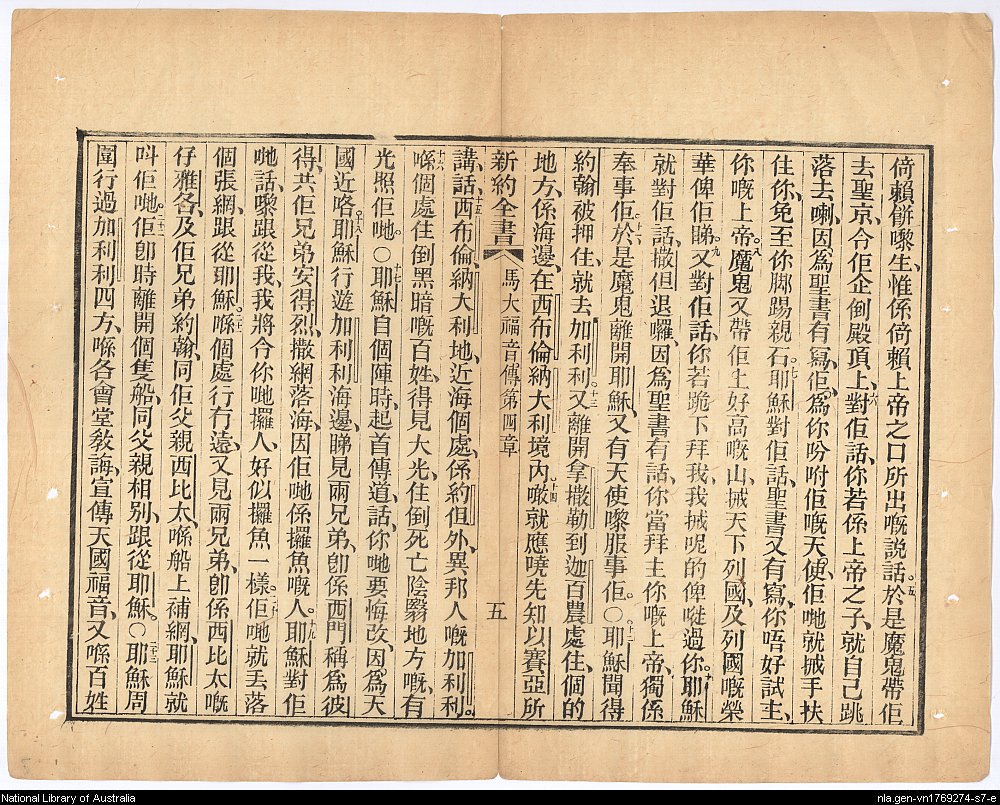 倚賴餅嚟生、惟係倚賴上帝之口所出嘅説話。五於是魔鬼帶佢
去聖京、令佢企倒殿頂上、六對佢話、你若係上帝之子、就自己跳
落去喇、因爲聖書有寫、佢爲你吩咐佢嘅天使、佢哋就搣手扶
住你、免至你脚踢親石。七耶穌對佢話、聖書又有寫、你唔好試主、
你嘅上帝。八魔鬼又帶佢上好高嘅山、搣天下列國、及列國嘅榮
華俾佢睇。九又對佢話、你若跪下拜我、我搣呢的俾嗺過你。十耶穌
就對佢話、撒但退囉、因爲聖書有話、你當拜主你嘅上帝、獨係
奉事佢。十一於是魔鬼離開耶穌、又有天使嚟服事佢。〇十二耶穌聞得
約翰被押住、就去加利利。十三又離開拿撒勒到迦百農處住、個的
地方、係海邊、在西布倫納大利境内、十四噉就應嘵先知以賽亞所
新約全書 馬大福音傳第四章 五
講話、十五西布倫、納大利地、近海個處、係約但外、異邦人嘅加利利。
十六喺個處住倒黑暗嘅百姓、得見大光、住倒死亡陰翳地方嘅、有
光照佢哋。〇十七耶穌自個陣時、起首傳道、話、你哋要悔改、因爲天
國近咯。十八耶穌行遊加利利海邊、睇見兩兄弟、卽係西門稱爲彼
得、共佢兄弟安得烈、撒網落海、因佢哋係攞魚嘅人。十九耶穌對佢
哋話、嚟跟從我、我將令你哋攞人、好似攞魚一樣。二十佢哋就丟落
個張網、跟從耶穌。二十一喺個處行有遠、又見兩兄弟、卽係西比太嘅
仔雅各、及佢兄弟約翰、同佢父親西比太、喺船上補網、耶穌就
叫佢哋。二十二佢卽時離開個隻船、同父親相别、跟從耶穌。〇二十三耶穌周
圍行過加利利四方、喺各會堂教誨、宣傳天國福音、又喺百姓
National Library of Australia
nla.gen-vn1769274-s7-e